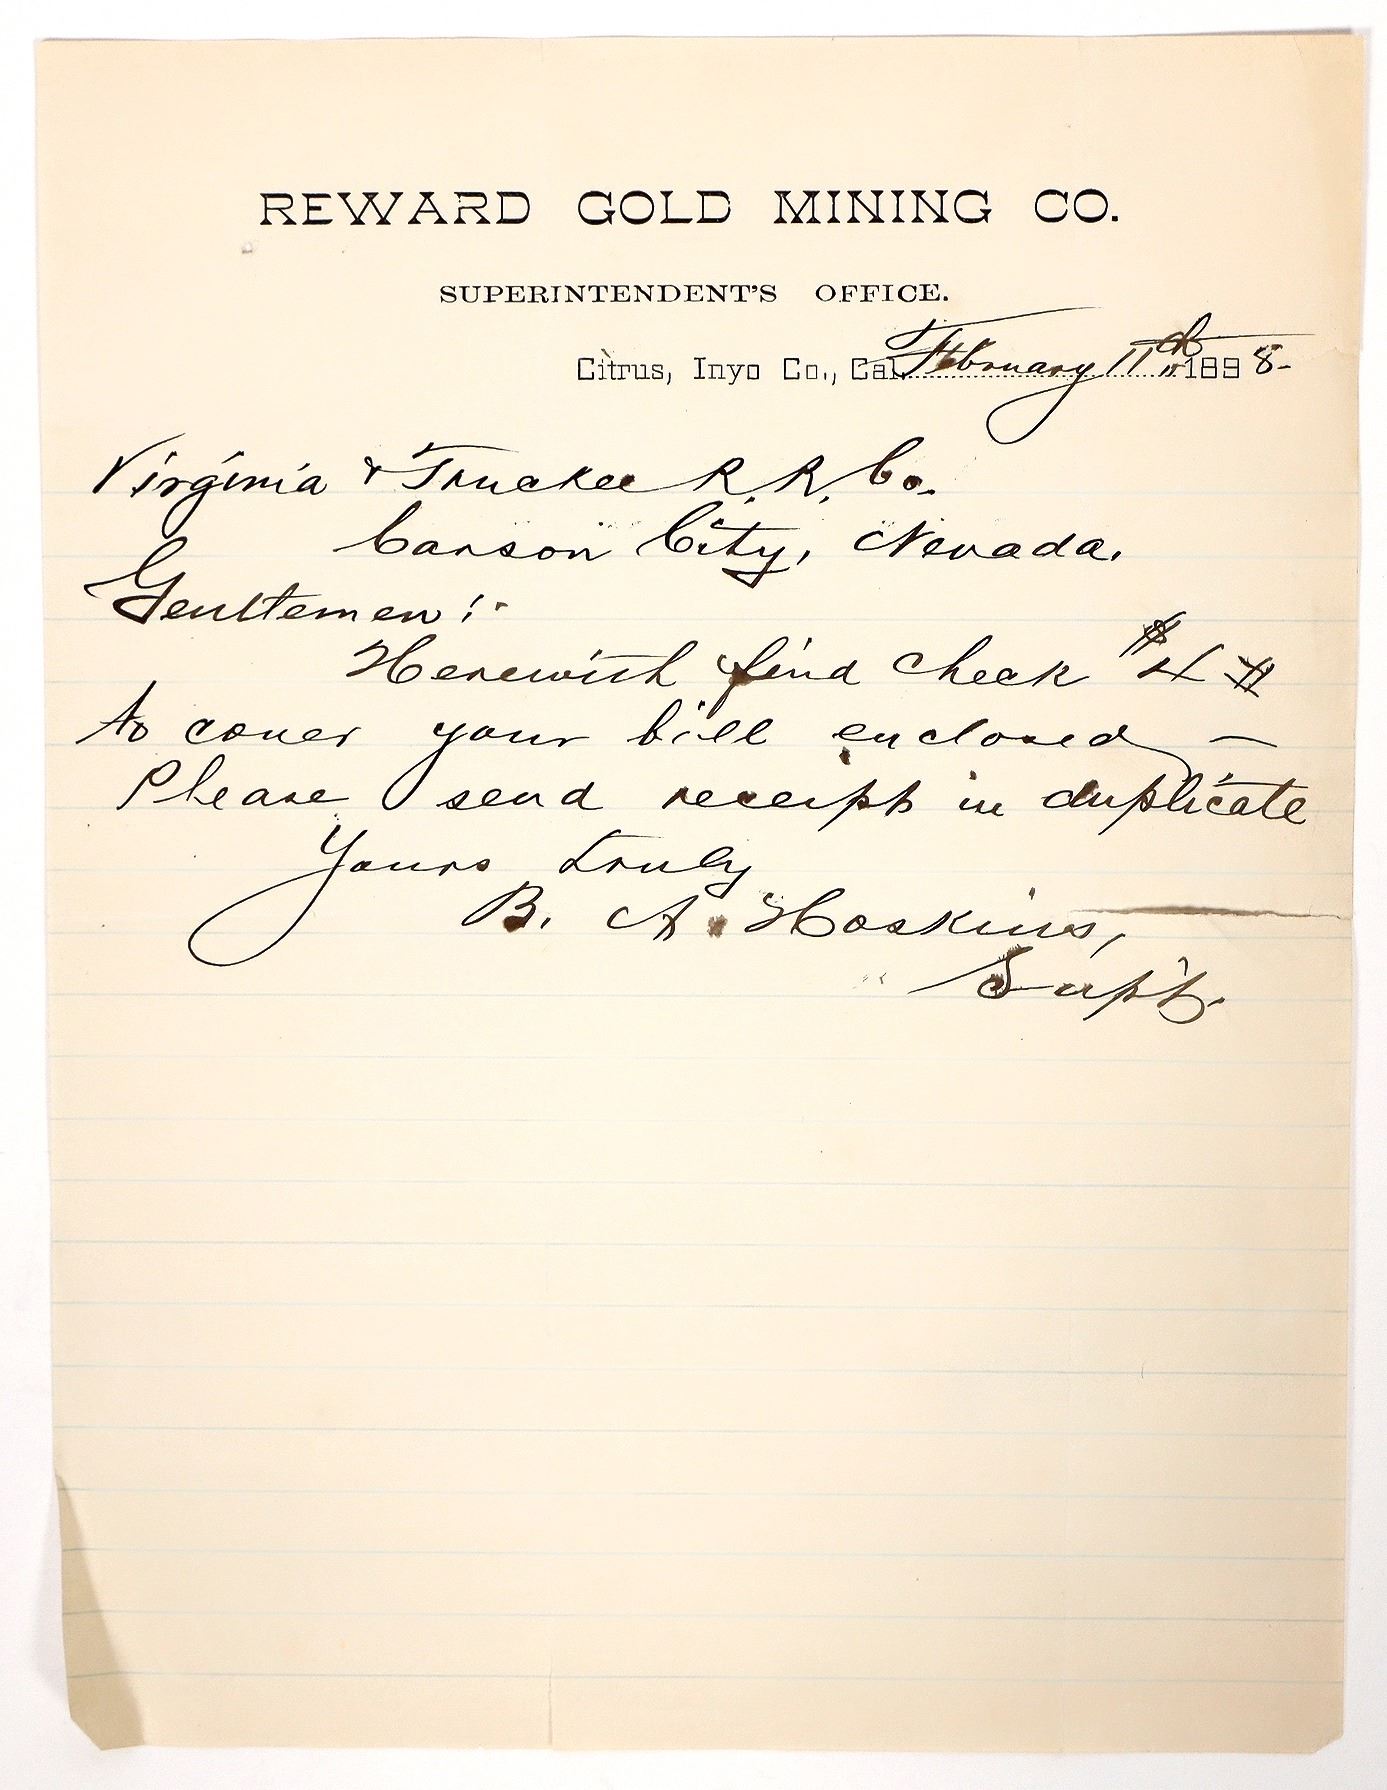 REWARD GOLD MINING CO.
SUPERINTENDENT'S OFFICE.
Citrus, Inyo Co., Cal. February 11th 1898-
Virginia & Truckee R. R. Co.
Carson City, Nevada.
Gentlemen:-
Herewith find check $4
to cover your bill enclosed —
Please send receipt in duplicate
Yours truly
B. A. Hoskins,
Supt.